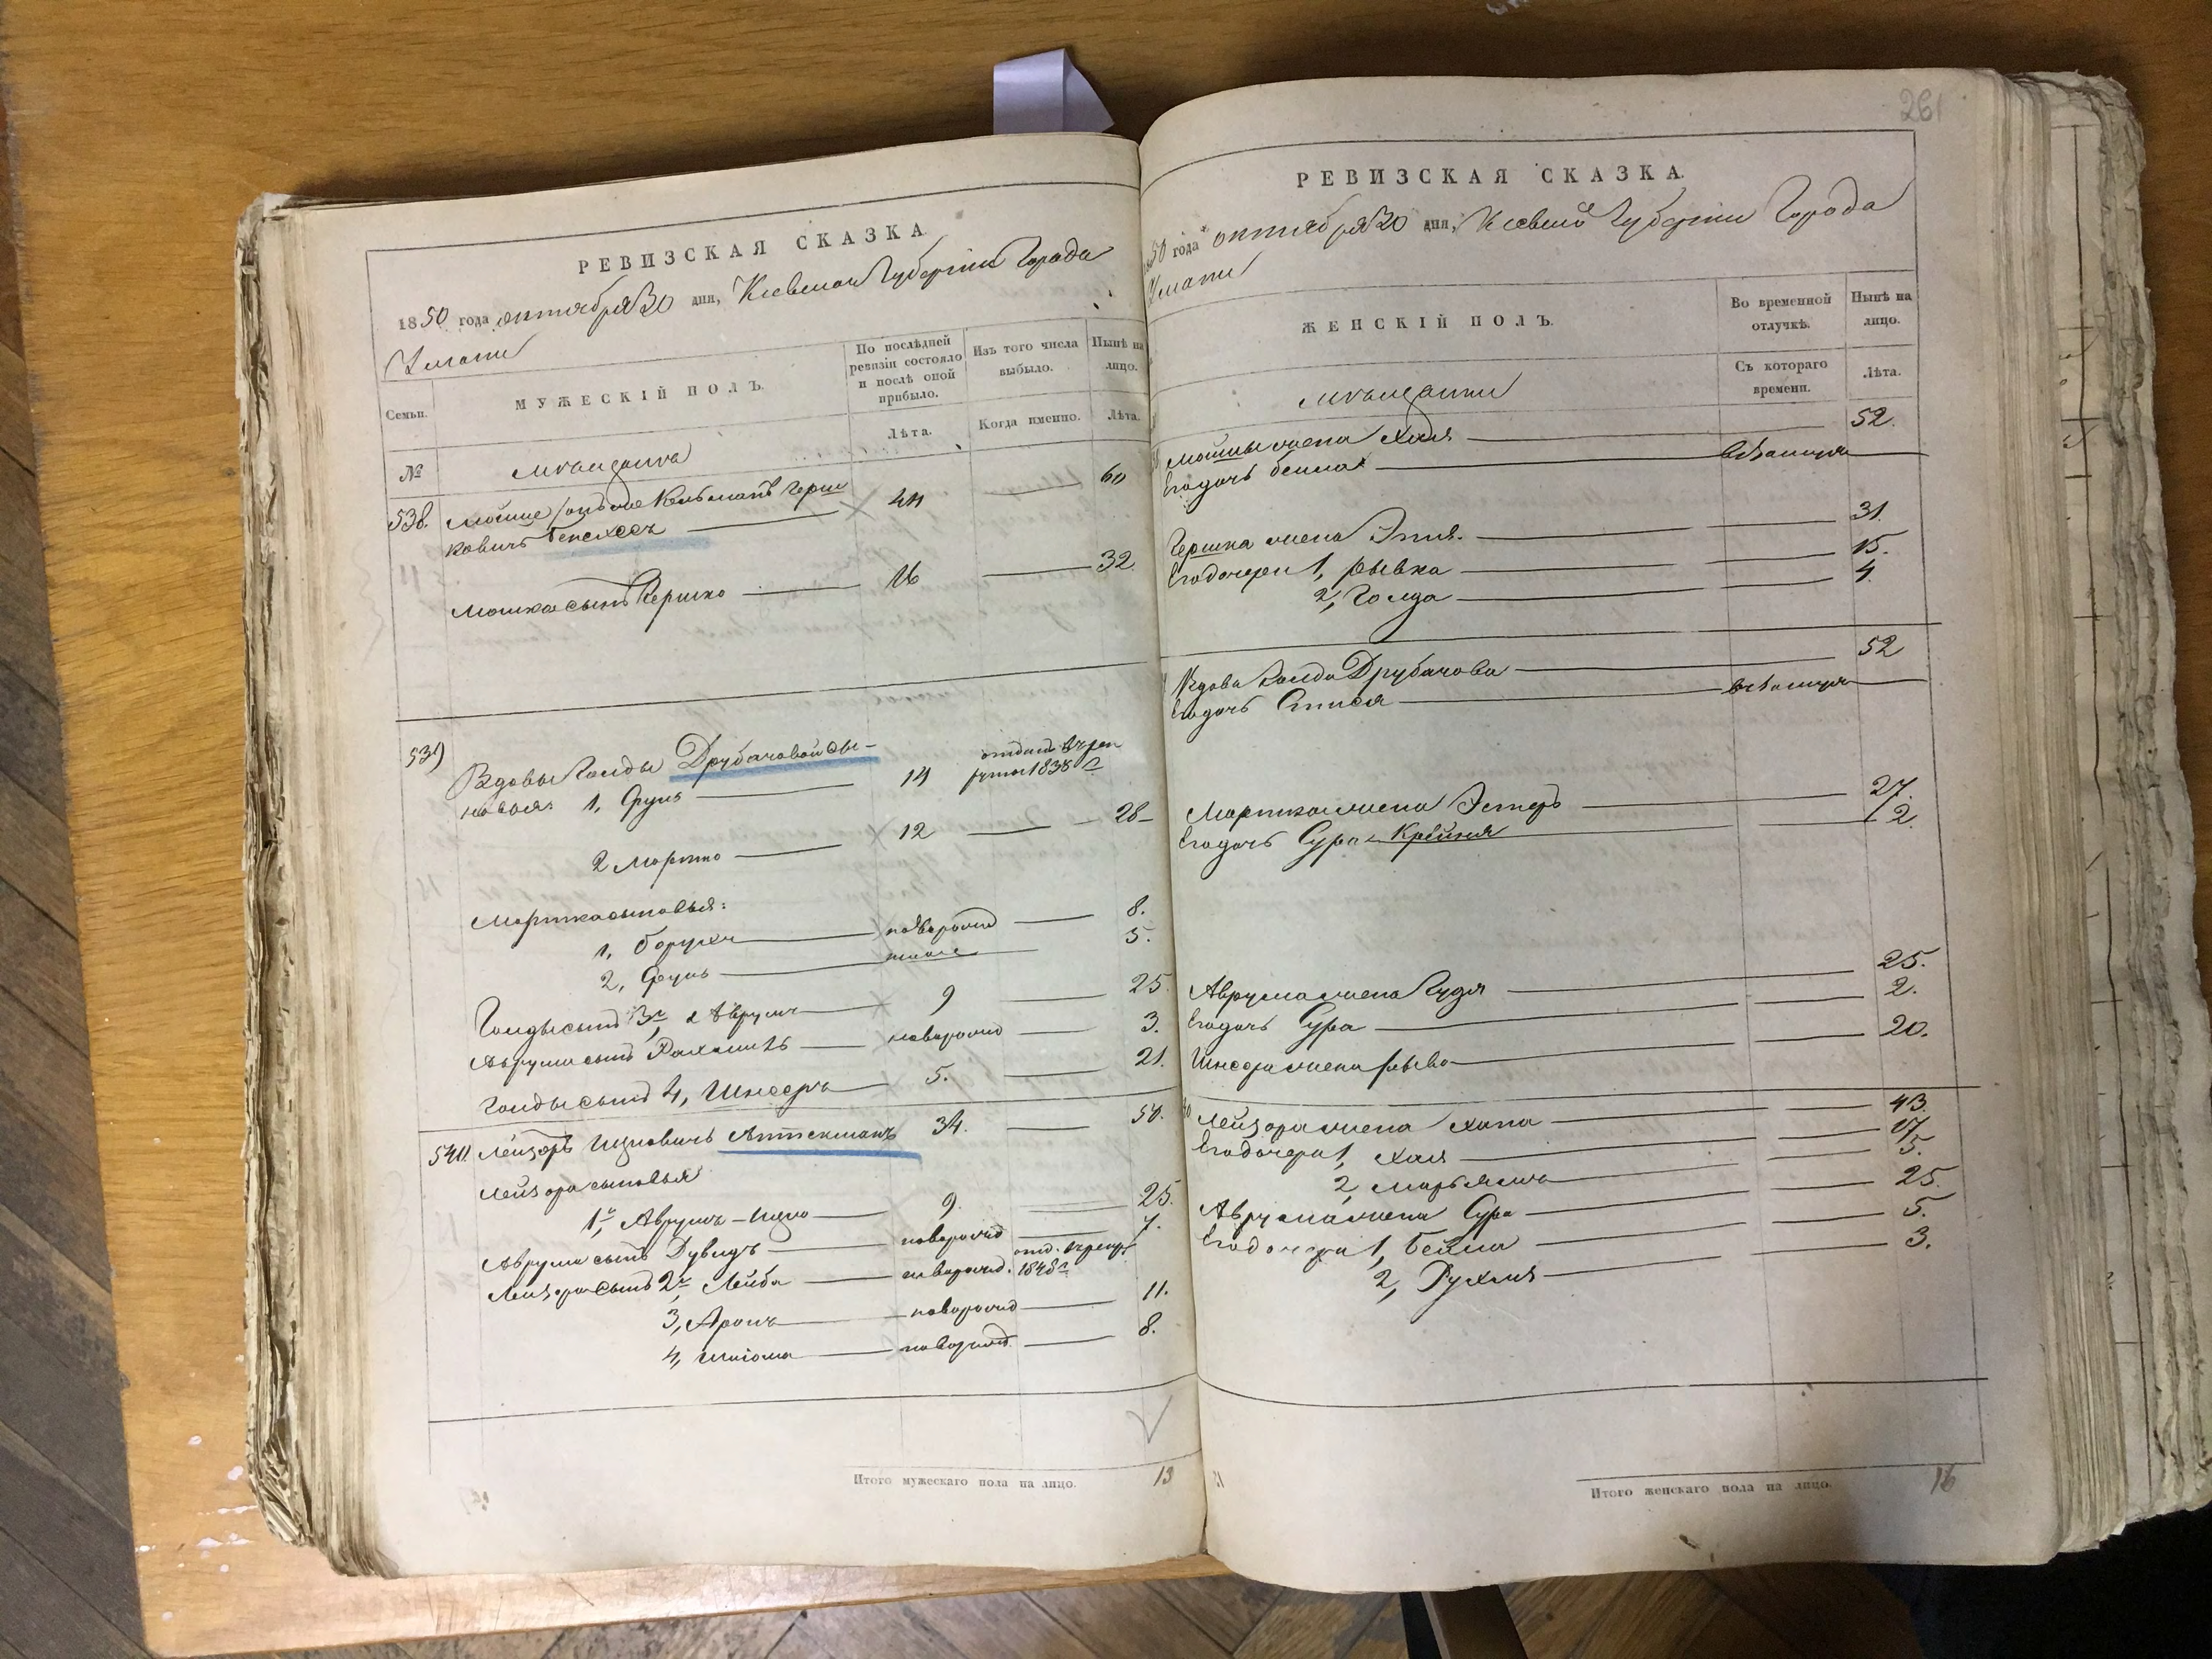 РЕВИЗСКАЯ СКАЗКА
1850 года октября 30 дня, Киевской Губернии Города
Умани
Семьи.
МУЖЕСКІЙ ПОЛЪ.
По послѣдней ревизіи состояло и послѣ оной прибыло.
Изъ того числа выбыло.
Нынѣ на лицо.
Лѣта.
Когда именно.
Лѣта.
№
Мѣщане
538. Мошко Кельманъ Герш
ковичъ 44 60
Мошка сынъ Гершко 16 32.
539
Вдовы Голды Друбачовой сы-
новья: 1, Фруль 14 отданъ въ рек
руты 1838 г
2 Мортко 12 28
Мортка сыновья:
1, Борухъ новорожд 8.
2, Фруль тоже 5.
Голды сынъ 3й, Аврумъ 9 25.
Аврума сынъ Рахмиль новорожд 3.
Голды сынъ 4, Шнееръ 5. 21.
540. Лейзоръ Ицковичъ Аптекманъ 34. 50.
Лейзора сыновья
1й, Аврумъ-Ицко 9. 25.
Аврума сынъ Дувидъ новорожд 7.
Лейзора сынъ 2й, Лейба новорожд. отд. в рекр. 1848 г
3, Аронъ новорожд 11.
4, Шлiома новорожд. 8.
Итого мужескаго пола на лицо. 13
261
РЕВИЗСКАЯ СКАЗКА.
1850 года октября 30 дня, Киевской Губернии Города
Умани
ЖЕНСКІЙ ПОЛЪ.
Во временной отлучкѣ.
Нынѣ на лицо.
Съ котораго времени.
Лѣта.
Мѣщанки
Мошки жена Хая 52.
Его дочь Бейла
Гершка жена Этля. 31.
Его дочери 1, Рывка 15.
2, Голда 4.
Вдова Голда Друбачова 52
Ея дочь
Мортка жена Эстеръ 27.
Его дочь Сура-Крейня 2.
Аврума жена Гудя 25.
Его дочь Сура 2.
Шнеера жена Рыва 20.
Лейзора жена Хана 43.
Его дочери 1, Хая 17.
2, Марьямъ 5.
Аврума жена Сура 25.
Его дочери 1, Бейла 5.
2, Рухля 3.
Итого женскаго пола на лицо. 16